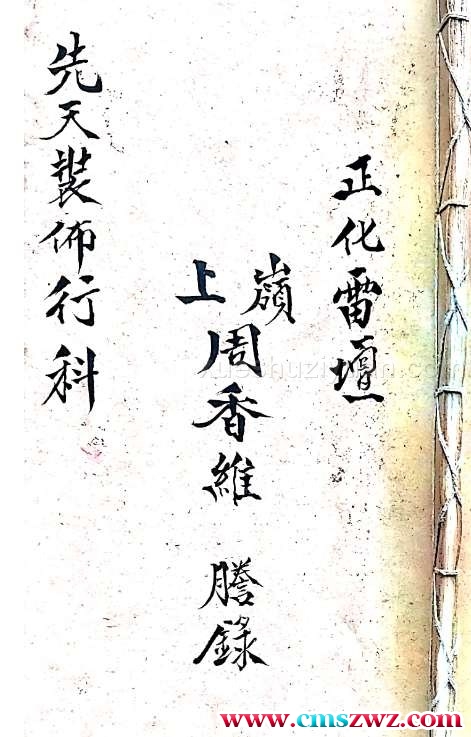 正化雷壇
嶺上
周香維 謄錄
先天裝佈行科
www.cmszwz.com